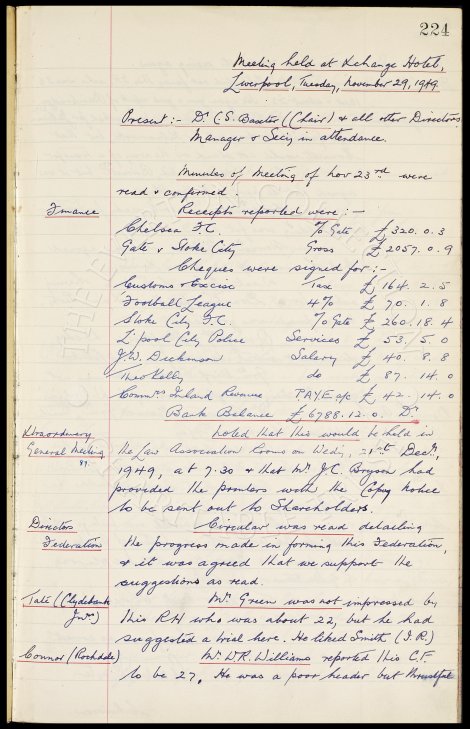 224
Meeting held at Xchange Hotel,
Liverpool, Tuesday, November 29, 1949.
Present :- Dr. C.S. Baxter (Chair) & all other Directors
Manager & Secy in attendance.
Minutes of Meeting of Nov 23rd were
read & confirmed.
Finance Receipts reported were :-
Chelsea F.C. % Gate £320. 0. 3
Gate v Stoke City Gross £2057. 0. 9
Cheques were signed for :-
Customs & Excise Tax £164. 2. 5
Football League 4% £70. 1. 8
Stoke City F.C. % Gate £260. 18. 4
L'pool City Police Services £53. 5. 0
J.W. Dickinson Salary £40. 8. 8
Theo Kelly do £87. 14. 0
Commrs Inland Revenue PAYE a/c £42. 14. 0
Bank Balance £6788. 12. 0. Dr
Xtraordinary Noted that this would be held in
General Meeting the Law Association Rooms on Wedy, Decr,
87. 1949, at 7.30 & that Mr. J.C. Bryson had
provided the printers with the Copy notice
to be sent out to Shareholders.
Directors Circular was read detailing
Federation the progress made in forming this Federation,
& it was agreed that we support the
suggestions as read.
Tate (Clydebank Mr. Green was not impressed by
Jnrs) this RH who was about 22, but he had
suggested a trial here. He liked Smith (I.R.)
Connor (Rochdale) Mr. W.R. Williams reported this C.F.
to be 27. He was a poor header but thrustful